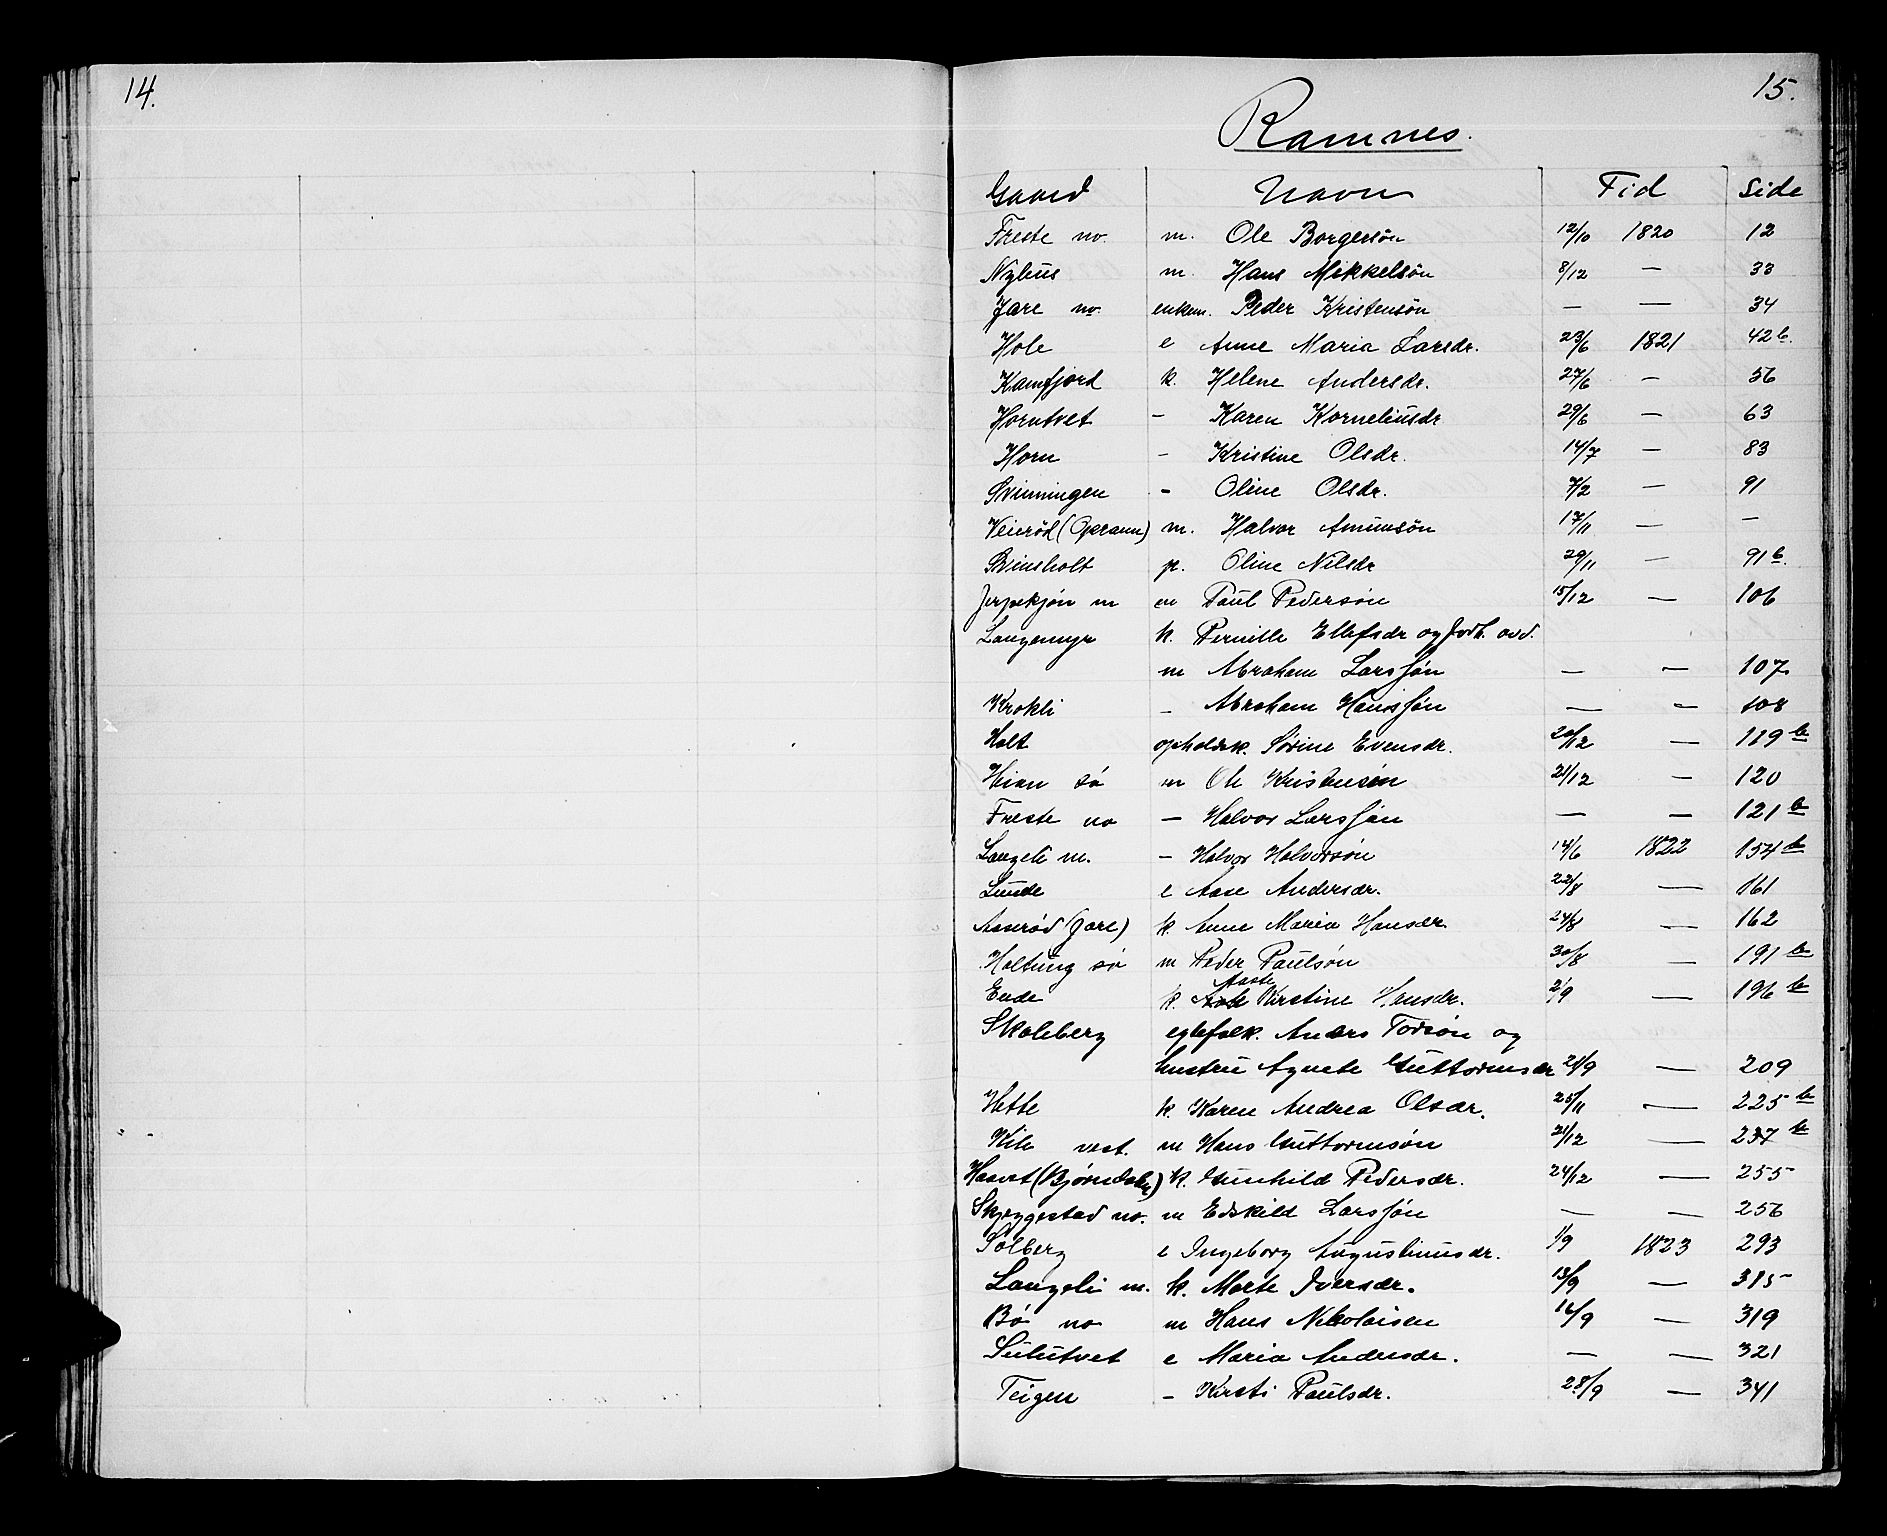 14.
15.
Ramnes.
Gaard Navn Tid Side
Freste no. m. Ole Borgersön 12/10 1820 12
Nyhus m. Hans Mikkelsön 8/12 — 33
Jare no. enkem. Peder Kristensön — — 34
Hole e Anne Maria Larsdr. 23/6 1821 42b.
Kamfjord k. Helene Andersdr. 27/6 — 56
Horntvet - Karen Korneliusdr 29/6 — 63
Horn - Kristine Olsdr. 14/7 — 83
Svinningen - Oline Olsdr. 7/2 — 91
Veieröd (Opramn) m. Halvor Amunsön 17/11 — —
Svinsholt p. Oline Nilsdr 29/11 — 91b.
Jerpekjøn m m Paul Pedersön 15/12 — 106
Langemyr k. Pernille Ellefsdr og forh. avd.
m Abraham Larssøn — — 107
Krokli - Abraham Hanssøn — — 108
Holt opholdsk. Sörine Evensdr. 20/12 — 119b
Hian sö m Ole Kristensen 21/12 — 120
Freste no — Halvor Larssøn — — 121b
Langeli m. - Halvor Halvorsön 14/6 1822 154b
Lunde e Aase Andersdr. 22/8 — 161
Aaserød (Jare) k. Anne Maria Hansdr. 24/8 — 162
Holtung sø m Peder Paulsön 30/8 — 191b
Aaste
Ende k. Kirstine Hansdr. 2/9 — 196b
Skoleberg egtefolk. Anders Torsön og
hustru Agnete Guttormsdr 21/9 — 209
Hette k. Karen Andrea Olsdr. 25/11 — 225b
Kile vest. m Hans Guttormsön 21/12 — 237b
Haavet (Bjørndalen) k. Gunhild Pedersdr. 24/12 — 255
Skjeggestad no. m Edskild Larssøn — — 256
Solberg e Ingeborg Augustinusdr. 1/9 1823 293
Langeli m. k. Marte Iversdr. 13/9 — 315
Bö no m Hans Nikolaisen 16/9 — 319
Sulutvet e Maria Andersdr. — — 321
Teigen - Kirsti Paulsdr. 28/9 — 341